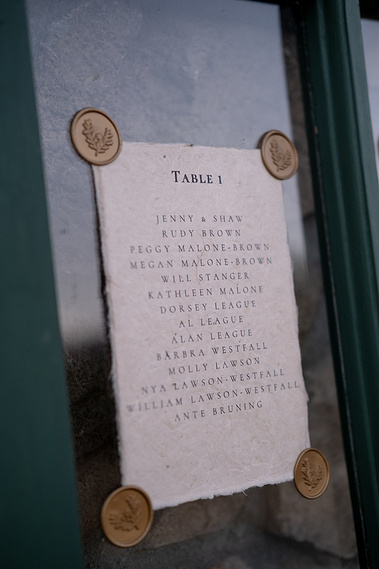 TABLE 1
JENNY & SHAW
RUDY BROWN
PEGGY MALONE-BROWN
MEGAN MALONE-BROWN
WILL STANGER
KATHLEEN MALONE
DORSEY LEAGUE
AL LEAGUE
ALAN LEAGUE
BARBRA WESTFALL
MOLLY LAWSON
NYA LAWSON-WESTFALL
WILLIAM LAWSON-WESTFALL
ANTE BRUNING